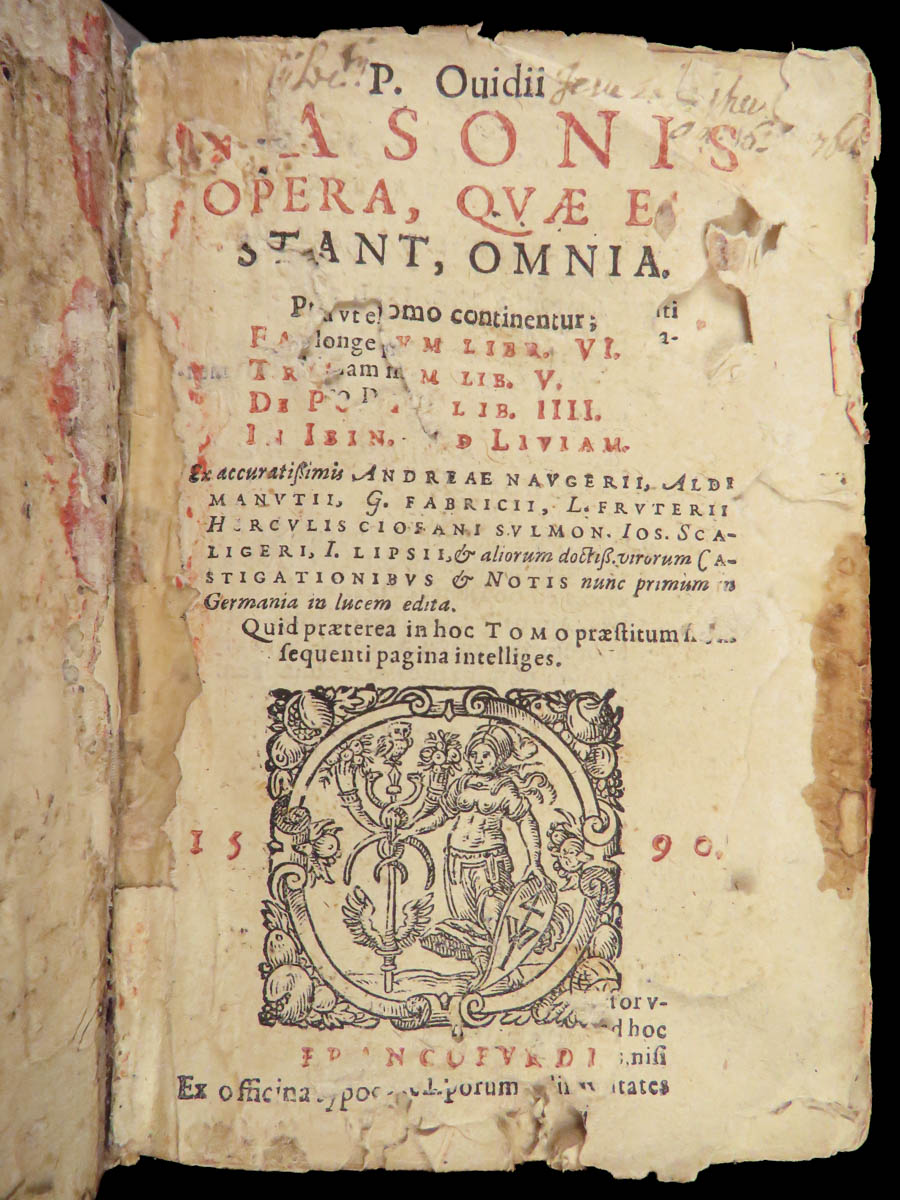 P. Ouidii
ASONIS
OPERA, QVÆ E
STANT, OMNIA.
omo continentur;
longe VM LIBR. VI.
LIB. V.
DE LIB. IIII.
IN IBIN. LIVIAM.
Ex accuratißimis ANDREAE NAVGERII, ALDI
MANVTII, G. FABRICII, L. FRVTERII
HERCVLIS CIOFANI SVLMON. IOS. SCA-
LIGERI, I. LIPSII, & aliorum doctiß. virorum CA-
STIGATIONIBVS & NOTIS nunc primum in
Germania in lucem edita.
Quid præterea in hoc TOMO præſtitum
ſequenti pagina intelliges.
15 90.
tor v-
d hoc
FRANCOFVRDI niſi
Ex officina